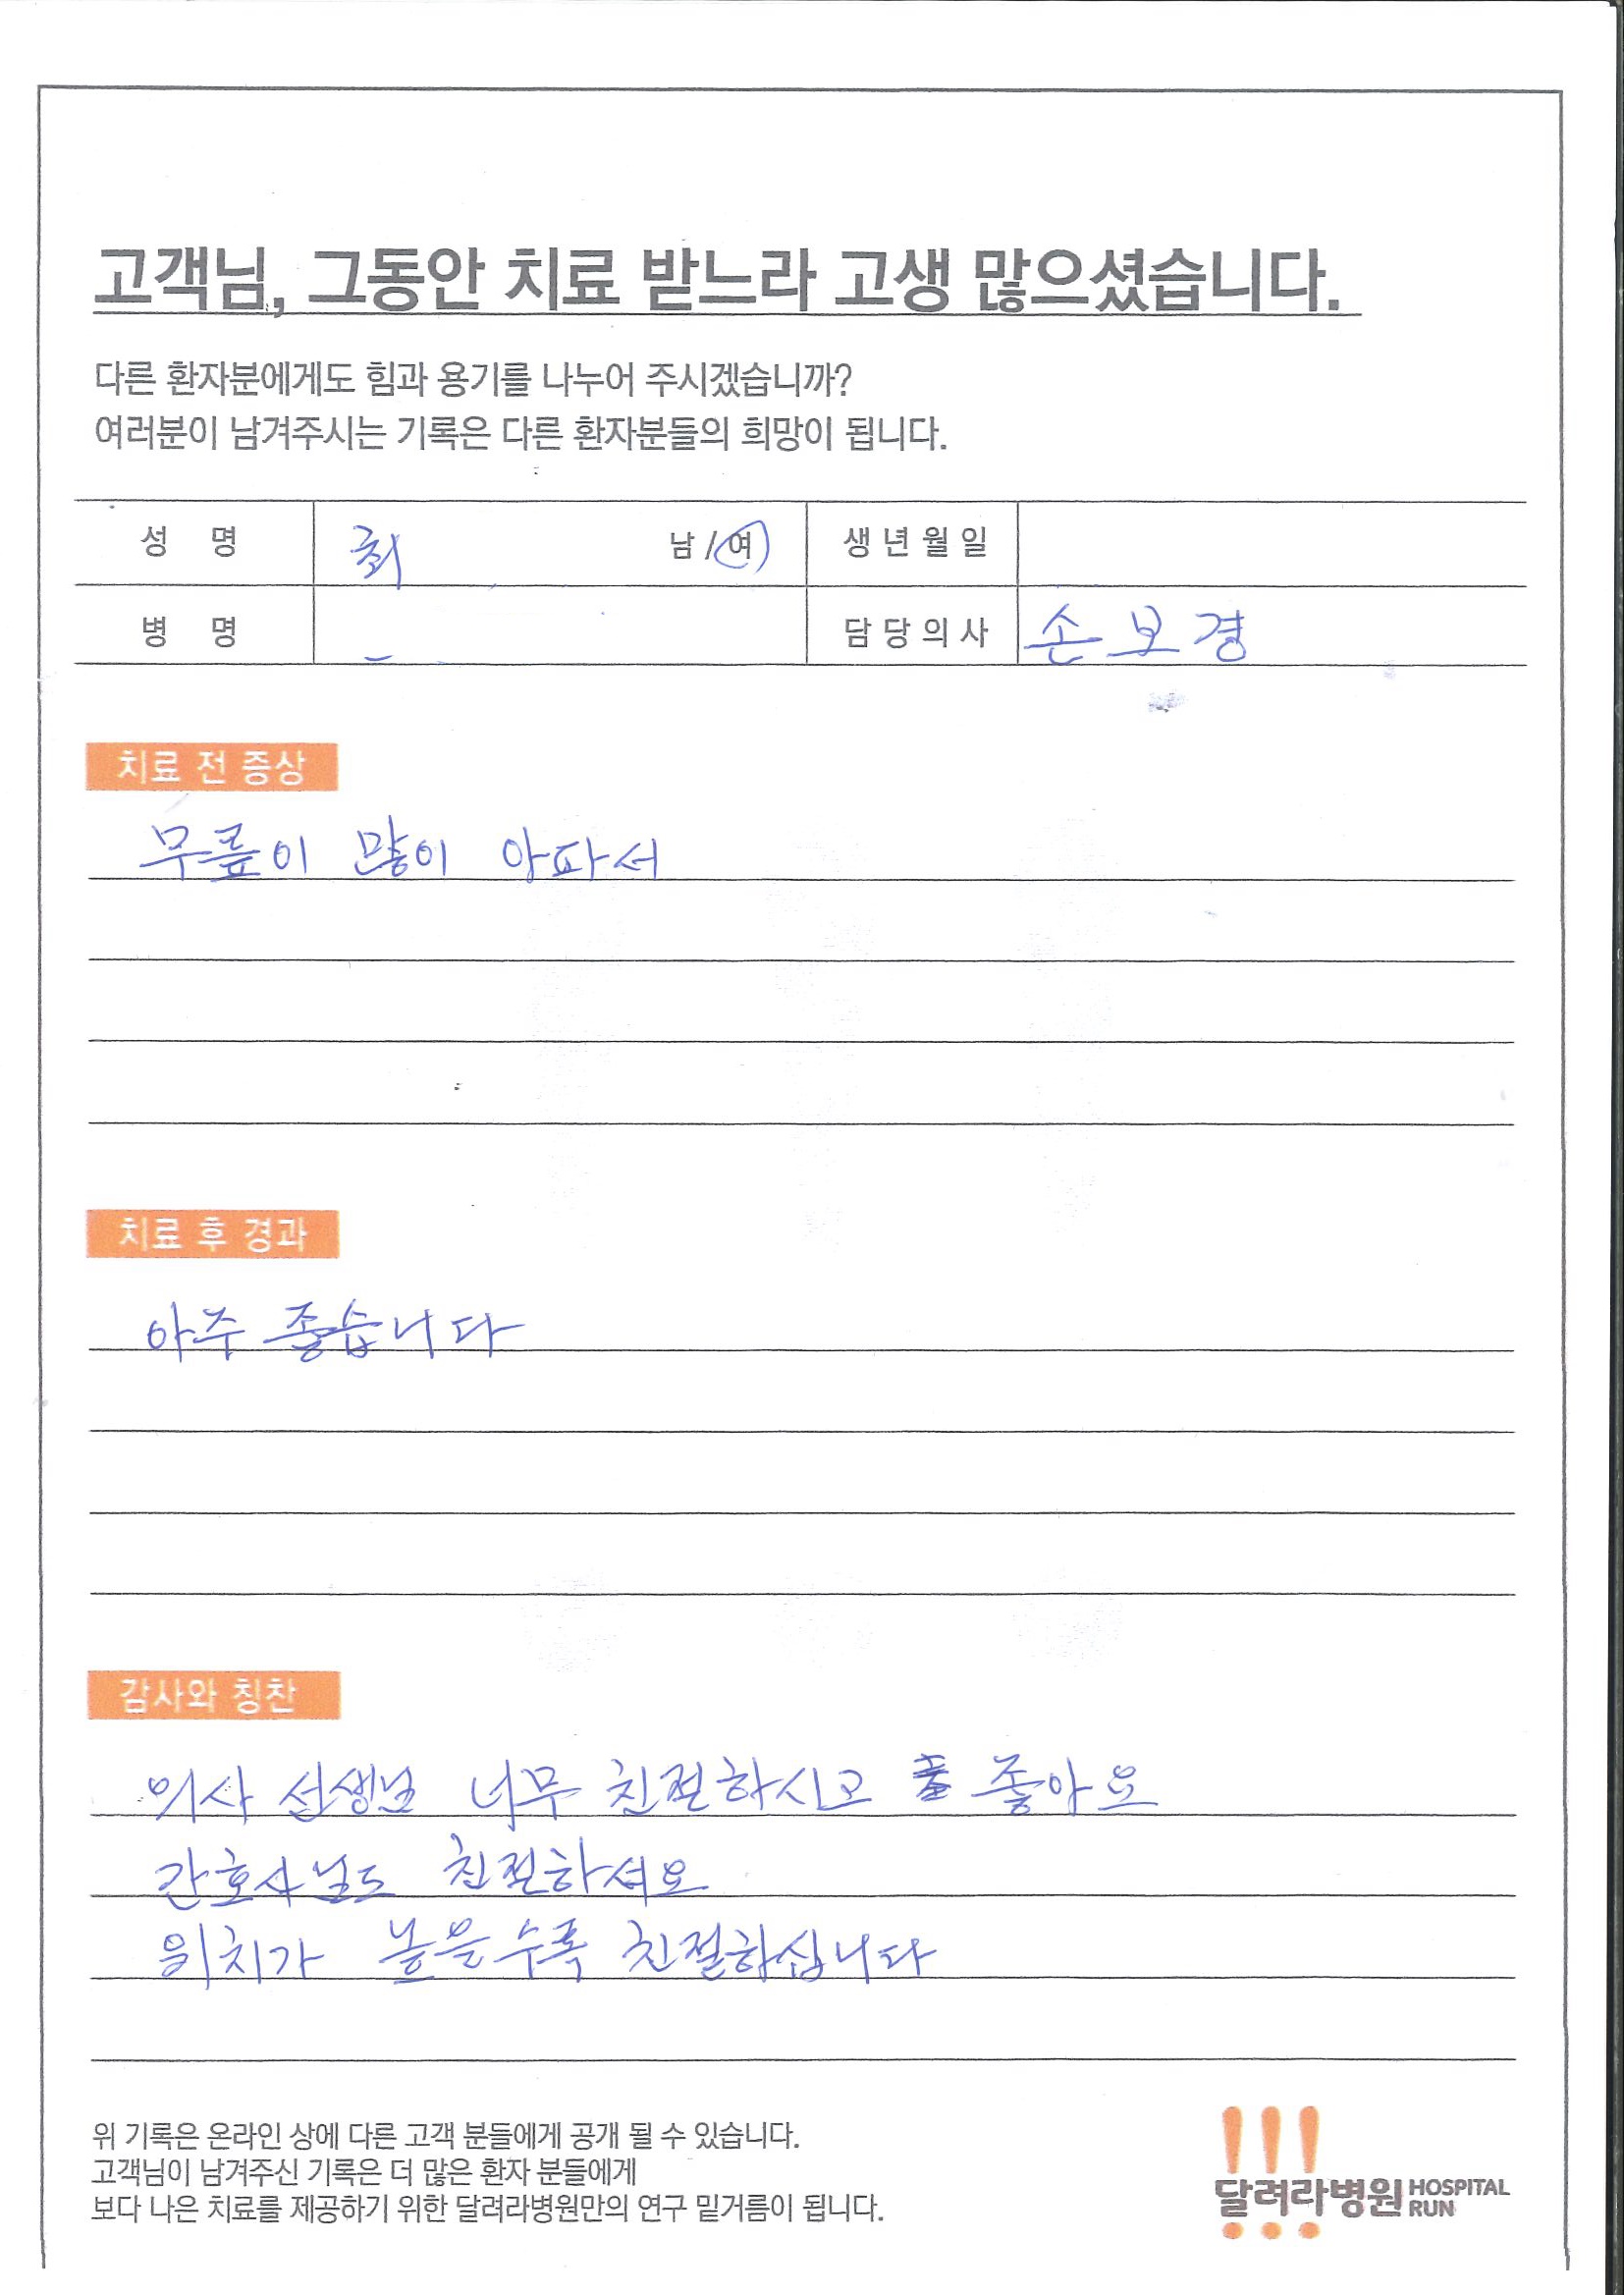 고객님, 그동안 치료 받느라 고생 많으셨습니다.
다른 환자분에게도 힘과 용기를 나누어 주시겠습니까?
여러분이 남겨주시는 기록은 다른 환자분들의 희망이 됩니다.
성 명 최 남 / 여 생 년 월 일
병 명 담 당 의 사 손보경
치료 전 증상
무릎이 많이 아파서
치료 후 경과
아주 좋습니다
감사와 칭찬
의사 선생님 너무 친절하시고 좋아요
간호사님도 친절하셔요
위치가 높을수록 친절하십니다
위 기록은 온라인 상에 다른 고객 분들에게 공개 될 수 있습니다.
고객님이 남겨주신 기록은 더 많은 환자 분들에게
보다 나은 치료를 제공하기 위한 달려라병원만의 연구 밑거름이 됩니다.
달려라병원 HOSPITAL RUN